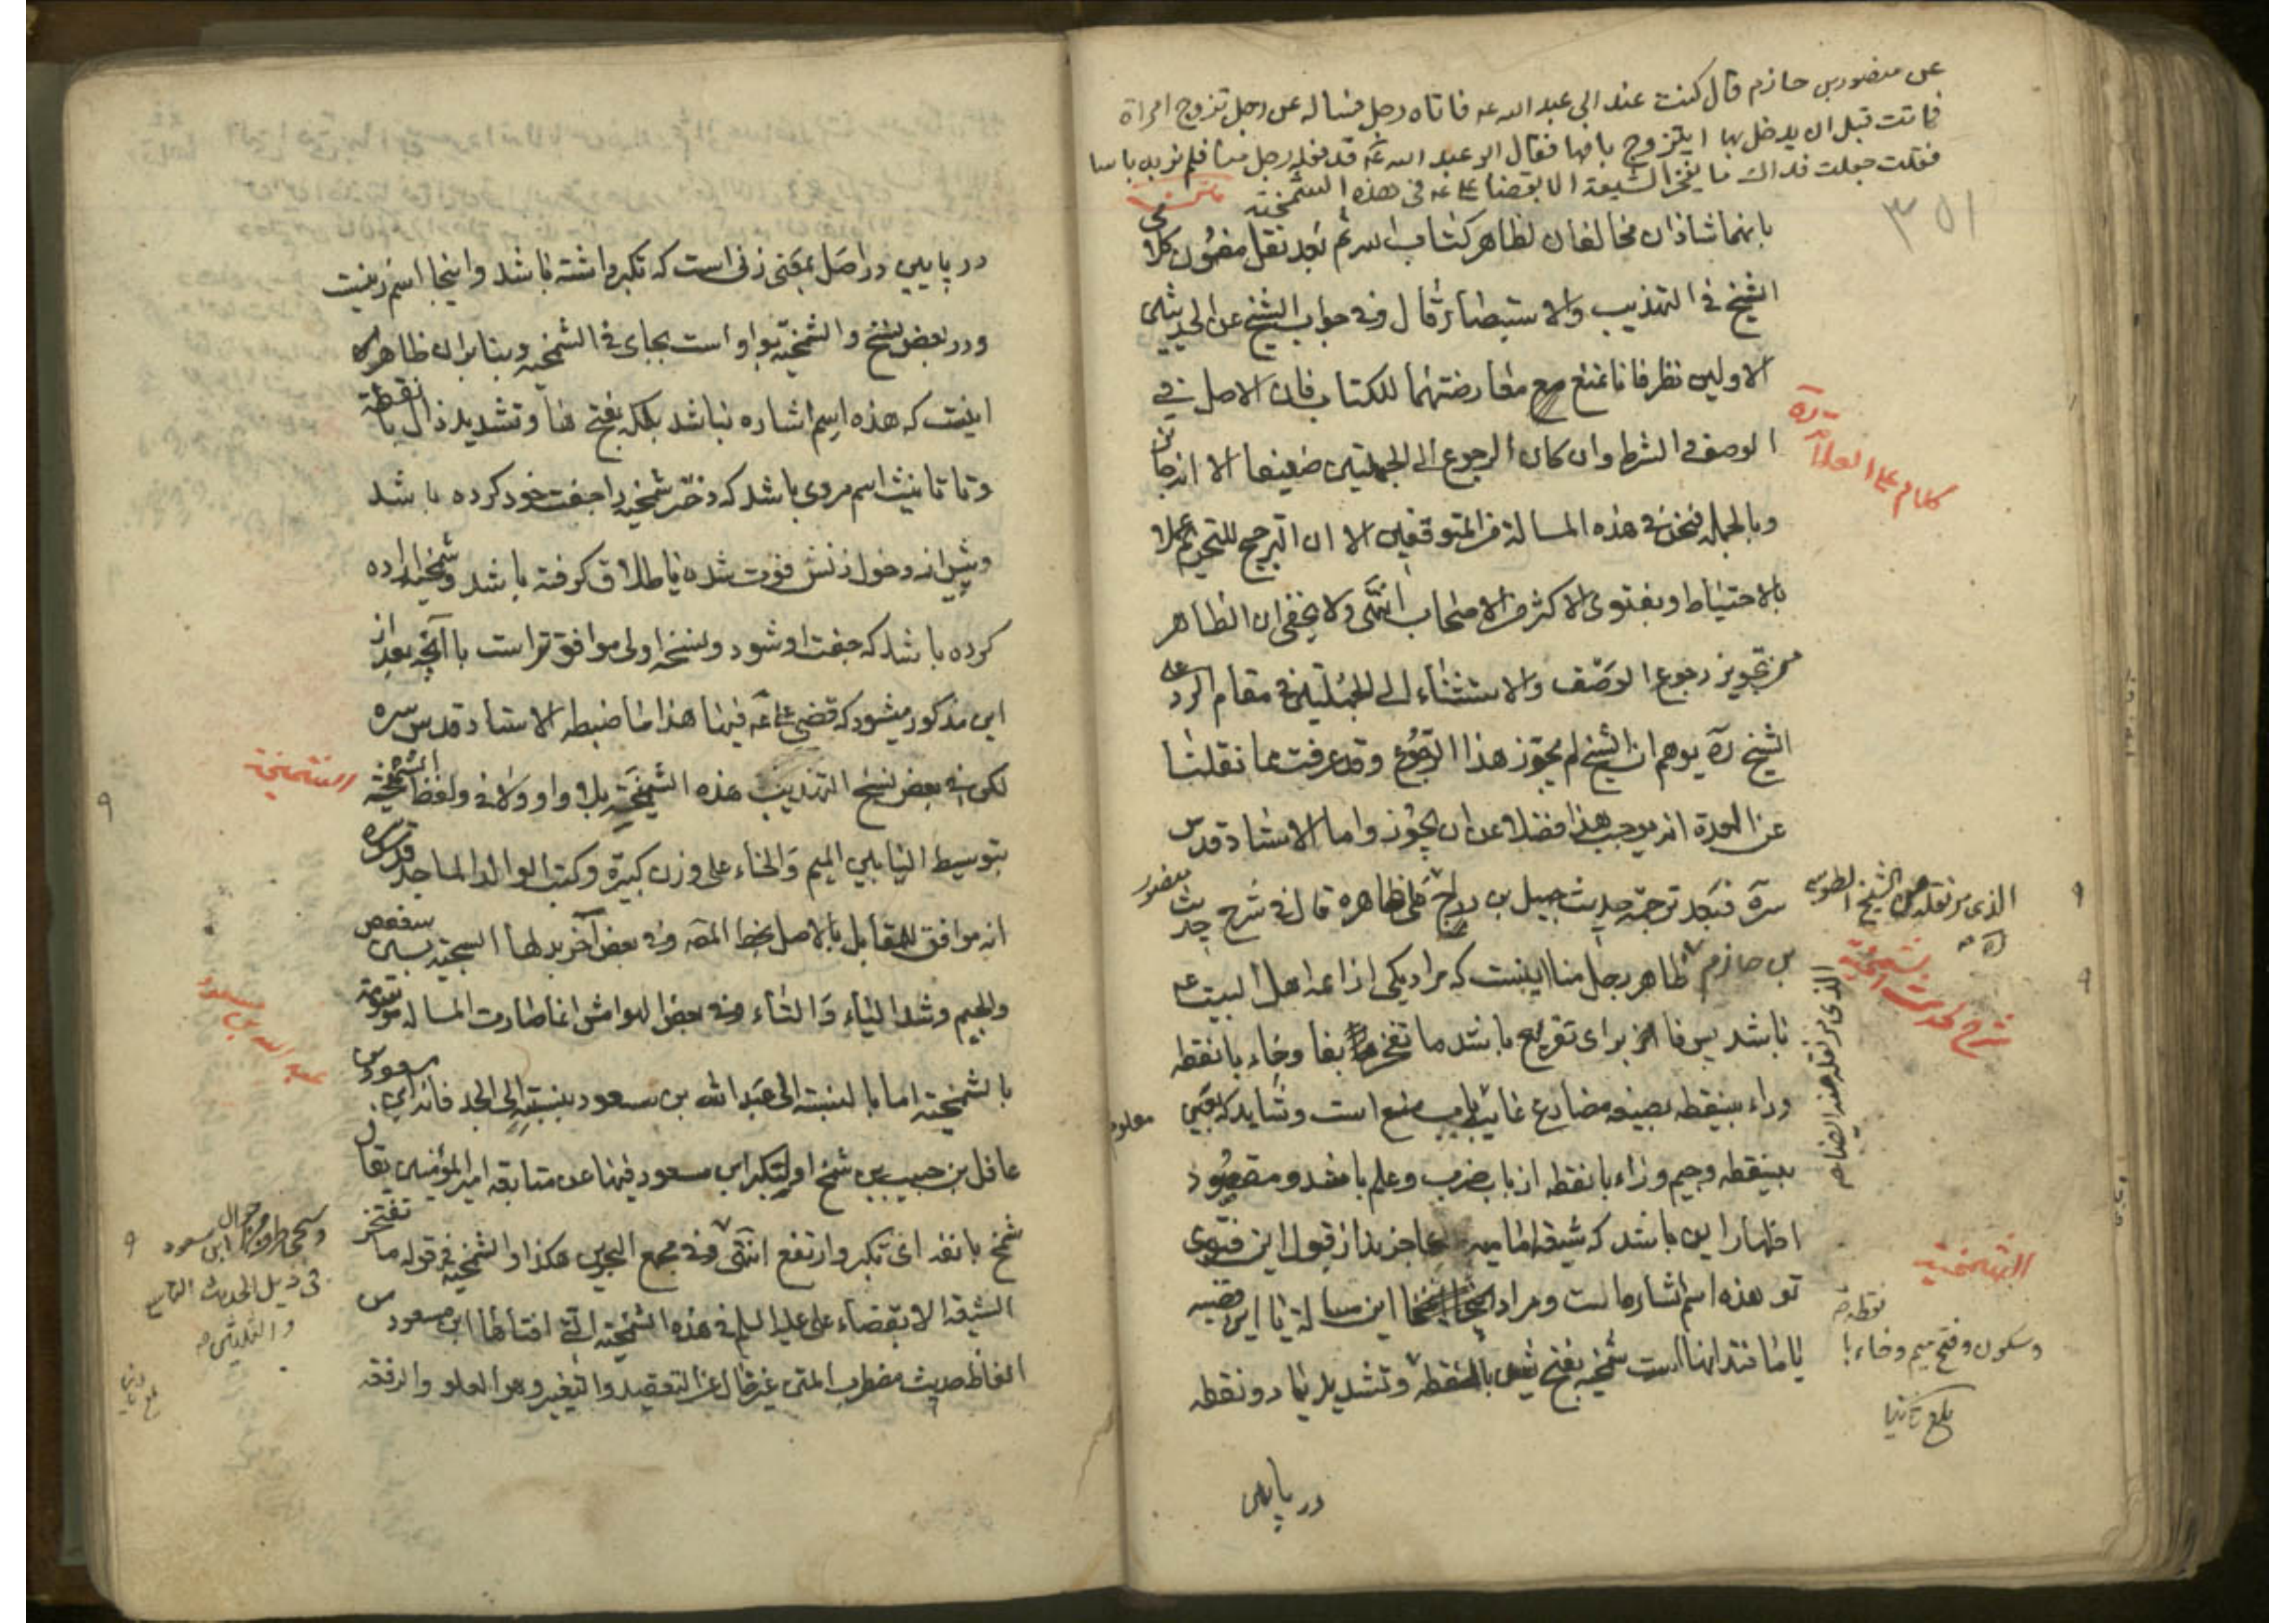 عن منصور بن حازم قال كنت عند ابي عبد الله عه فاتاه رجل فساله عن رجل تزوج امراة
فماتت قبل ان يدخل بها ايتزوج بامها فقال ابو عبد الله عه قد فعله رجل منا فلم نر به باسا
فقلت جعلت فداك ما يفخر الشيعة الا بقضاء علي عه في هذه الشمخية
٣٥١
بانهما شاذان مخالفان لظاهر كتاب الله ثم بعد نقل مضمون كلام
الشيخ في التهذيب والاستبصار قال وفي جواب الشيخ عن الحديثين
الاولين نظر فانا نمنع معارضتهما للكتاب فان الاصل في
الوصف والشرط وان كان الرجوع الى الجملتين ضعيفا الا انه جائز
وبالجملة فنحن في هذه المسالة من المتوقفين الا ان الترجيح للتحريم عملا
بالاحتياط وبفتوى الاكثر من الاصحاب انتهى ولا يخفى ان الظاهر
من تجويز رجوع الوصف والاستثناء الى الجملتين في مقام الرد على
الشيخ ره يوهم ان الشيخ لم يجوز هذا الرجوع وقد عرفت مما نقلنا
عن العدة انه يوجب هذا فضلا عن ان يجوز واما الاستاد قدس
سره فبعد توجيه حديث جميل بن دراج على ظاهره قال في شرح حديث منصور
بن حازم ظاهر رجل منا اينست كه مراد يكى از ائمه اهل البيت عه
باشد پس فا از براى تفريع باشد ما تفخر بفا وخاء بانقطه
وراء بينقطه بصيغه مضارع غايب باب منع است وشايد كه بعين
بينقطه وجيم وزاء بانقطه از باب ضرب وعلم باشد ومقصود
اظهار اين باشد كه شيعه اماميه عاجزند از قبول اين فتوى
تو هذه اسم اشاره است ومراد اينجا اين مسالة يا اين قضيه
يا مانند انها است شمخيه بفتح شين بانقطه وتشديد يا دو نقطه
در پايين
كلام على العلامة ره
الذى مر نقله عن الشيخ الطوسي
ره
شرح حديث الشمخية
معلوم
الشمخية
وسكون وفتح ميم وخاء با نقطه
بلغ ثانيا
در پايين در اصل بمعنى زنى است كه تكبر داشته باشد واينجا اسم زنيست
ودر بعض نسخ والشمخية بواو است بجاى في الشمخية وبنابران ظاهر
اينست كه هذه اسم اشاره نباشد بلكه بفتح ها وتشديد ذال با نقطة
وتا تانيث اسم مردى باشد كه دختر شمخيه را جفت خود كرده باشد
وپيش از دخول زنش فوت شده يا طلاق گرفته باشد وشمخيه اراده
كرده باشد كه جفت او شود ونسخه اولى موافق تر است با آنچه بعد از
اين مذكور ميشود كه قضى علي عه فيها هذا ما ضبطه الاستاد قدس سره
لكن في بعض نسخ التهذيب هذه الشمخية بلا واو ولا في ولفظ الشمخية
بتوسيط اليا بين الميم والخاء على وزن كبيرة وكتب الوالد الماجد قدس سره
انه موافق للمقابل بالاصل بخط المصه وفي بعض آخر بدلها السجية بسين سعفص
والجيم وشد الياء والتاء وفي بعض الهوامش انما صارت المسالة موسومة
بالشمخية اما بالنسبة الى عبد الله بن مسعود بنسبة الى الجد فانه ابن مسعود بن
غافل بن حبيب بن شمخ او لتكبر ابن مسعود فيها عن متابعة امير المؤمنين يقال
شمخ بانفه اى تكبر وارتفع انتهى وفي مجمع البحرين هكذا والشمخية في قوله ما تفتخر
الشيعة الا بقضاء على عليه السلم في هذه الشمخية التى افتاها ابن مسعود
الفاظ حديث مضطرب المتن غير خال عن التعقيد والتغيير وهو العلو والرفعة
الشمخية
عبد الله بن مسعود
في ذيل الحديث التاسع
والثلثين